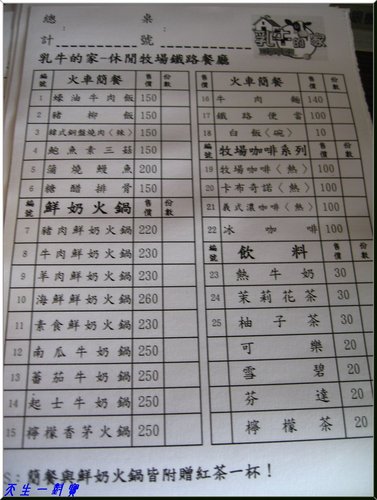 總計
桌號
乳牛的家
乳牛的家-休閒牧場鐵路餐廳
編號 火車簡餐 售價 份數
1 蠔油牛肉飯 150
2 豬柳飯 150
3 韓式銅盤燒肉(辣) 150
4 鮑魚素三菇 150
5 蒲燒鰻魚 200
6 糖醋排骨 150
編號 鮮奶火鍋 售價 份數
7 豬肉鮮奶火鍋 220
8 牛肉鮮奶火鍋 230
9 羊肉鮮奶火鍋 230
10 海鮮鮮奶火鍋 260
11 素食鮮奶火鍋 230
12 南瓜牛奶鍋 250
13 蕃茄牛奶鍋 250
14 起士牛奶鍋 250
15 檸檬香茅火鍋 250
火車簡餐 售價 份數
16 牛肉麵 140
17 鐵路便當 100
18 白飯(碗) 10
牧場咖啡系列 售價 份數
19 牧場咖啡(熱) 100
20 卡布奇諾(熱) 100
21 義式濃咖啡(熱) 100
22 冰咖啡 100
飲料 售價 份數
23 熱牛奶 30
24 茉莉花茶 30
25 柚子茶 30
可樂 20
雪碧 20
芬達 20
檸檬茶 20
S:簡餐與鮮奶火鍋皆附贈紅茶一杯!
天生一對寶